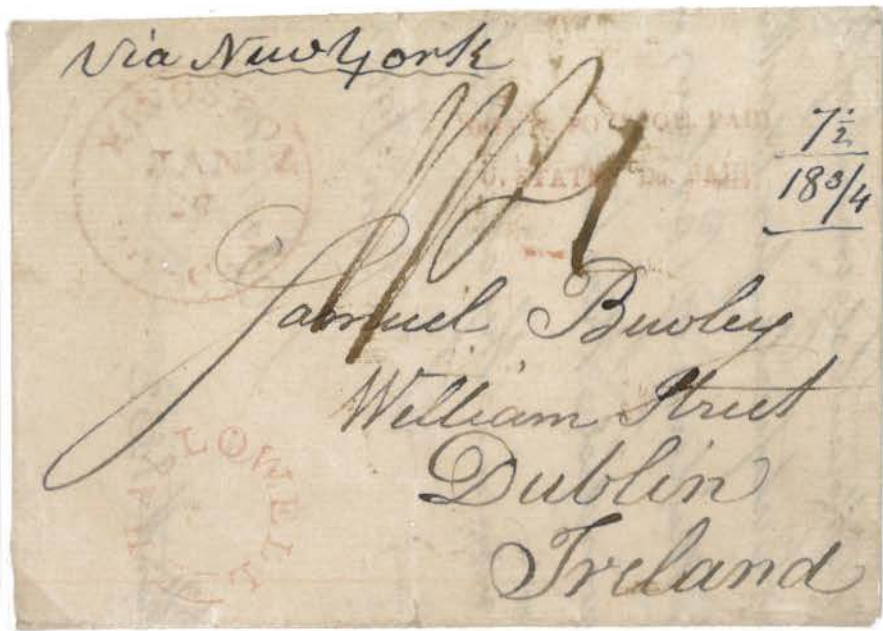 Via New York
KINGSTON
JAN
U.C.
PAID
U. STATES Do PAID.
7½
18 3/4
1/1
Samuel Bewley
William Street
Dublin
Ireland
HALLOWELL